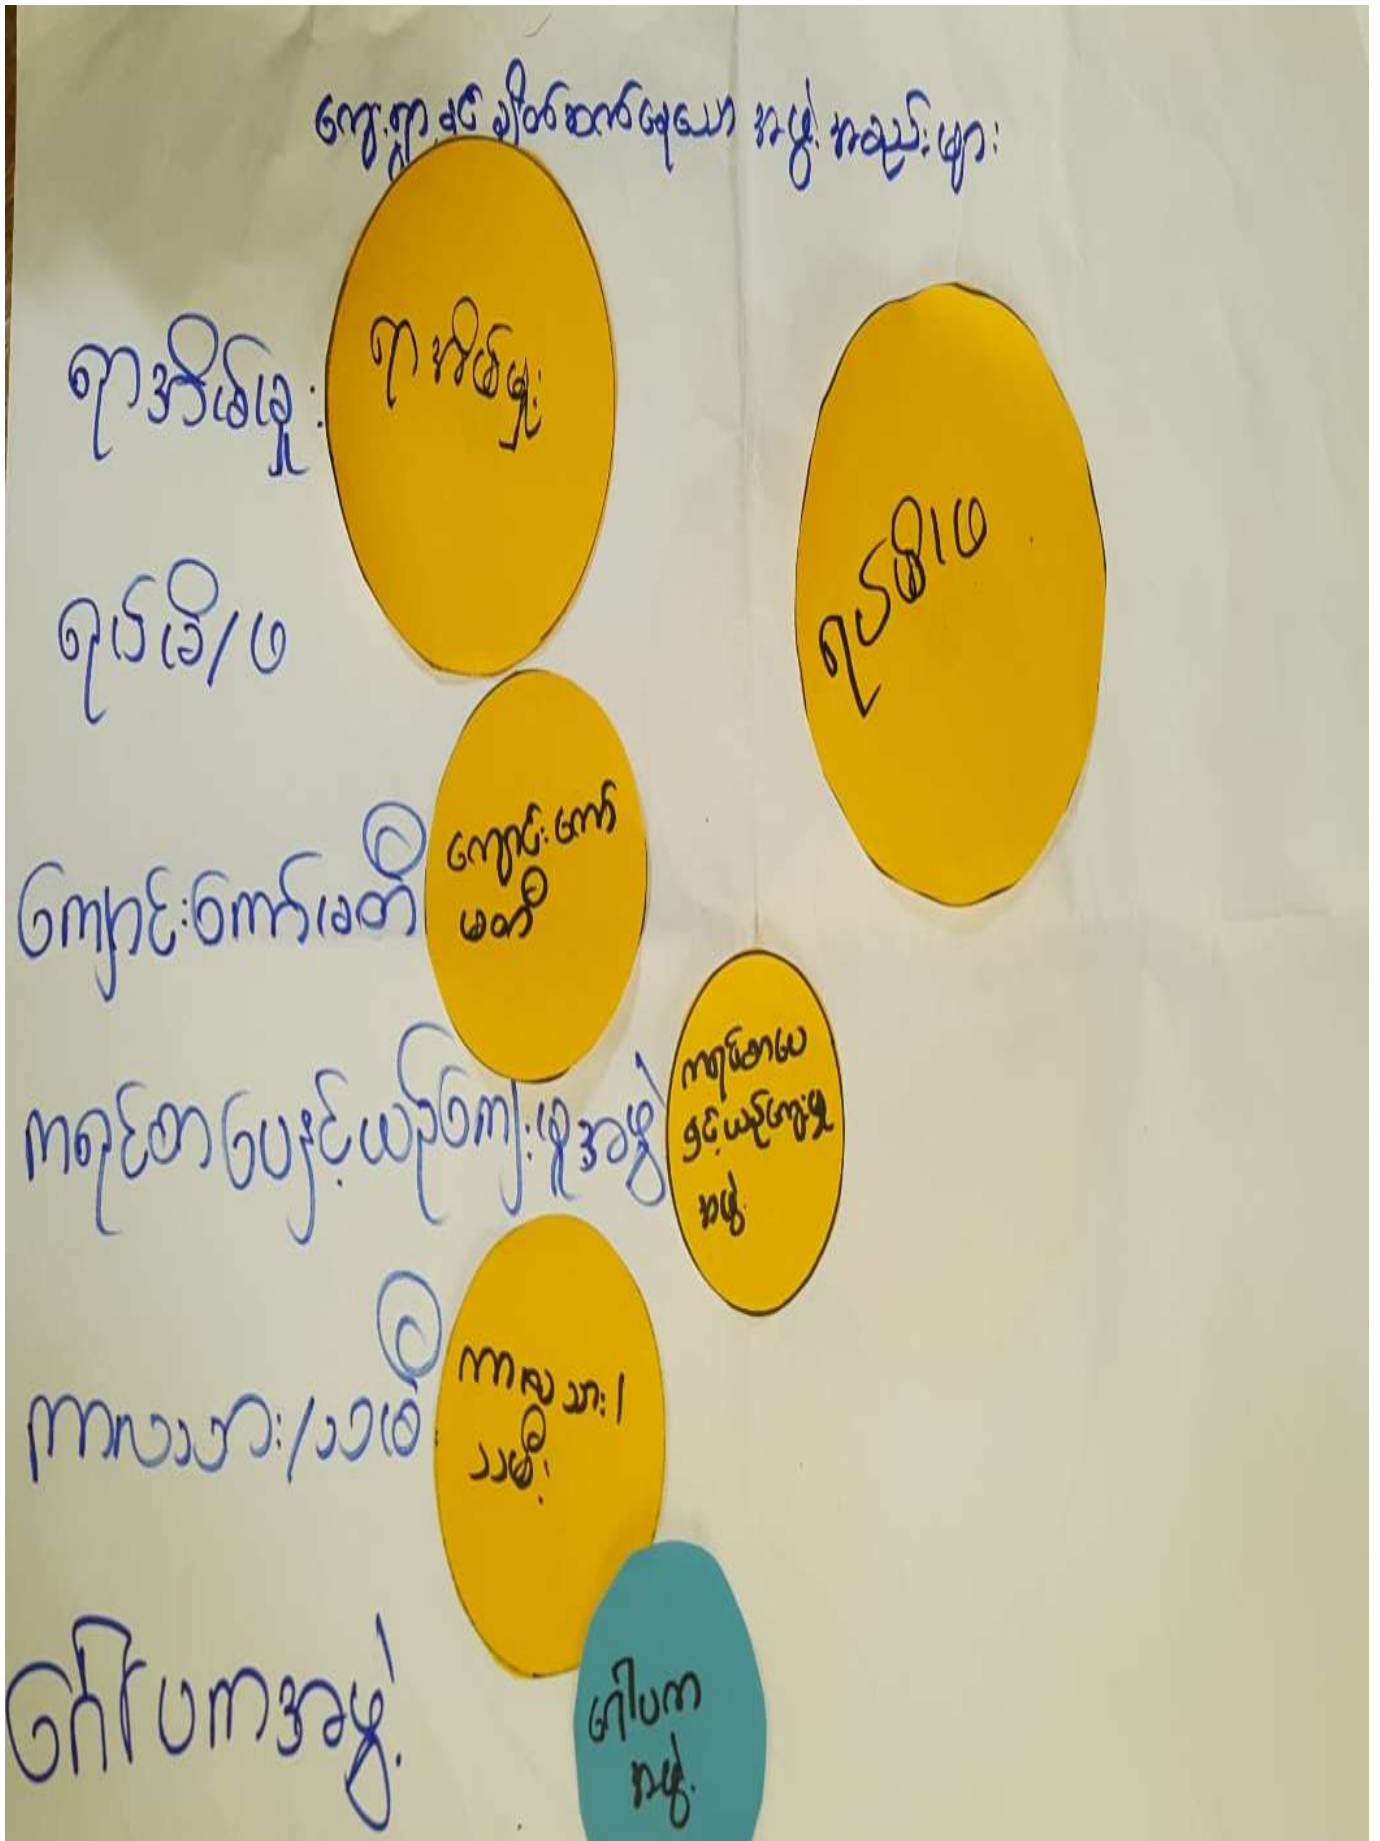 ကျေးရွာနှင့် ချိတ်ဆက်နေသော အဖွဲ့အစည်းများ
ရာအိမ်မှူး
ရာအိမ်မှူး
ရပ်မိ/ဖ
ရပ်မိ/ဖ
ကျောင်းကော်မတီ
ကျောင်းကော်
မတီ
ကရင်စာပေနှင့်ယဉ်ကျေးမှုအဖွဲ့
ကရင်စာပေ
နှင့်ယဉ်ကျေးမှု
အဖွဲ့
ကာလသား/သမီး
ကာလသား/
သမီး
ဂေါပကအဖွဲ့
ဂေါပက
အဖွဲ့